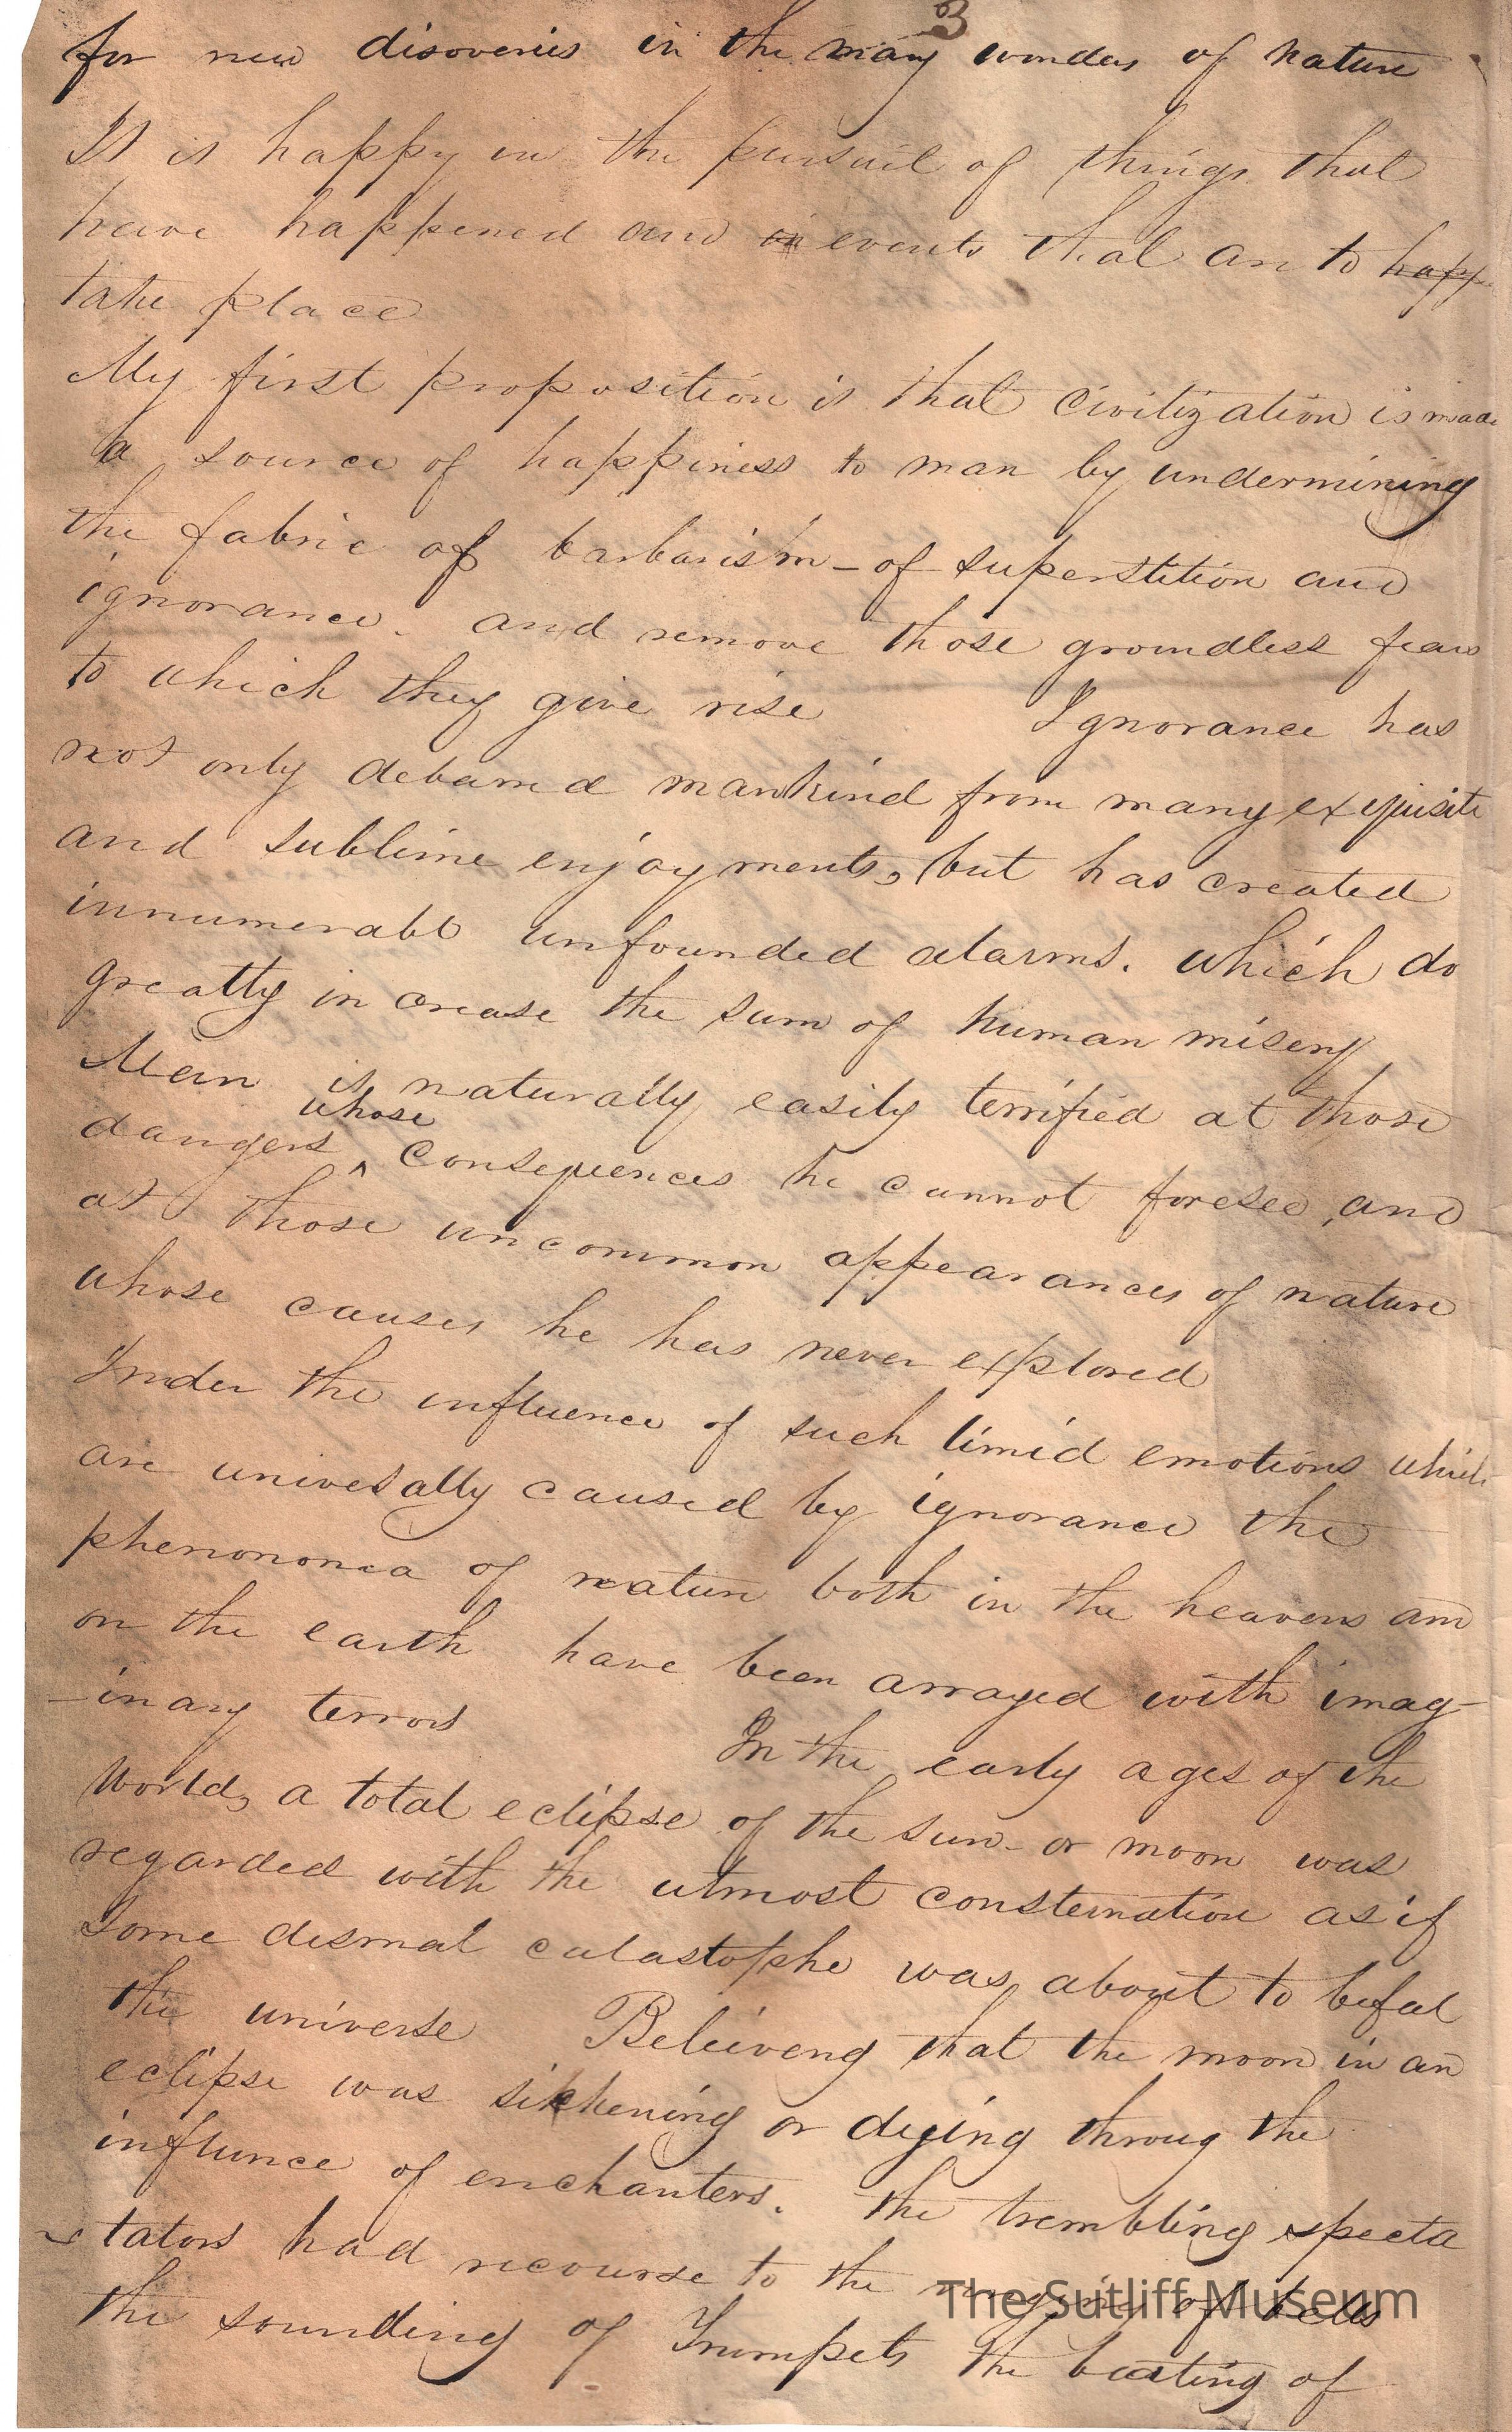 3
for new disoveries in the many wonders of nature
It is happy in the pursuit of things that
have happened and in events that are to happ
take place
My first proposition is that civilization is made
a source of happiness to man by undermining
the fabric of barbarism - of superstition and
ignorance. and remove those groundless fears
to which they give rise Ignorance has
not only debarred mankind from many exquisite
and sublime enjoyments, but has created
innumerable unfounded alarms. which do
greatly increase the sum of human misery
Man is naturally easily terrified at those
whose
dangers ^ consequences he cannot foresee, and
at those uncommon appearances of nature
whose causes he has never explored
Under the influence of such timid emotions which
are univesally caused by ignorance the
phenononea of nature both in the heavens and
on the earth have been arrayed with imag-
-inary terrors In the early ages of the
World, a total eclipse of the sun - or moon was
regarded with the utmost consternation as if
some dismal catastophe was about to befal
the universe Beleiveng that the moon in an
eclipse was sikkening or dyeing throug the
influnce of enchanters. the trembling specta
-tators had recourse to the ringing of bells
The Sutliff Museum
the sounding of Trumpets the beating of